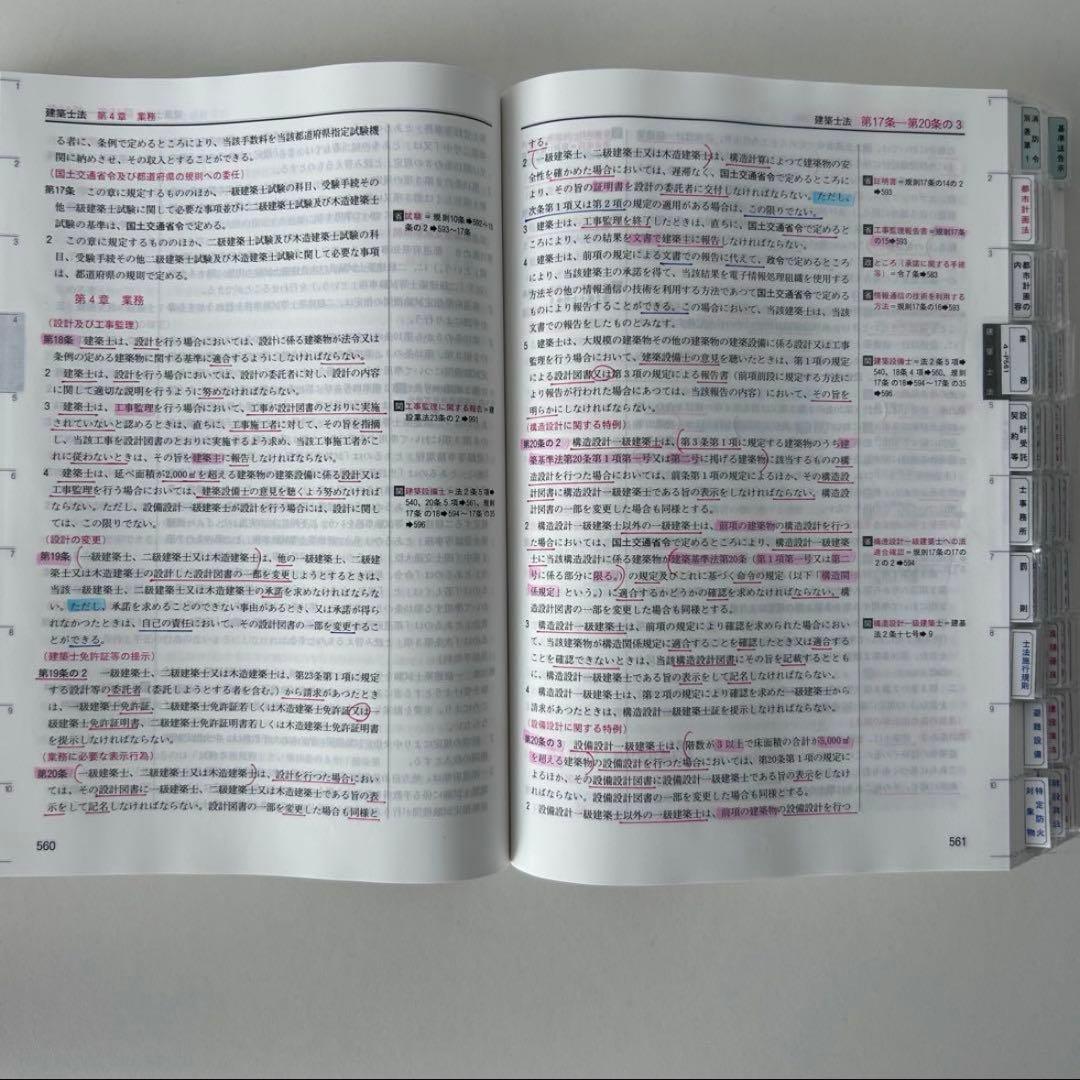 建築士法 第4章 業務
る者に、条例で定めるところにより、当該手数料を当該都道府県指定試験機
関に納めさせ、その収入とすることができる。
(国土交通省令及び都道府県の規則への委任)
第17条 この章に規定するもののほか、一級建築士試験の科目、受験手続その
他一級建築士試験に関して必要な事項並びに二級建築士試験及び木造建築士
試験の基準は、国土交通省令で定める。
2 この章に規定するもののほか、二級建築士試験及び木造建築士試験の科
目、受験手続その他二級建築士試験及び木造建築士試験に関して必要な事項
は、都道府県の規則で定める。
省 試験=規則10条➡592〜15
条の2➡593〜17条
第4章 業務
(設計及び工事監理)
第18条 建築士は、設計を行う場合においては、設計に係る建築物が法令又は
条例の定める建築物に関する基準に適合するようにしなければならない。
2 建築士は、設計を行う場合においては、設計の委託者に対し、設計の内容
に関して適切な説明を行うように努めなければならない。
3 建築士は、工事監理を行う場合において、工事が設計図書のとおりに実施
されていないと認めるときは、直ちに、工事施工者に対して、その旨を指摘
し、当該工事を設計図書のとおりに実施するよう求め、当該工事施工者がこ
れに従わないときは、その旨を建築主に報告しなければならない。
関 工事監理に関する報告=建
設業法23条の2➡991
4 建築士は、延べ面積が2,000㎡を超える建築物の建築設備に係る設計又は
工事監理を行う場合においては、建築設備士の意見を聴くよう努めなければ
ならない。ただし、設備設計一級建築士が設計を行う場合には、設計に関し
ては、この限りでない。
関 建築設備士=法2条5項➡
540、20条5項➡561、規則
17条の18➡594〜17条の35
➡596
(設計の変更)
第19条 一級建築士、二級建築士又は木造建築士は、他の一級建築士、二級建
築士又は木造建築士の設計した設計図書の一部を変更しようとするときは、
当該一級建築士、二級建築士又は木造建築士の承諾を求めなければならな
い。ただし、承諾を求めることのできない事由があるとき、又は承諾が得ら
れなかつたときは、自己の責任において、その設計図書の一部を変更するこ
とができる。
(建築士免許証等の提示)
第19条の2 一級建築士、二級建築士又は木造建築士は、第23条第1項に規定
する設計等の委託者(委託しようとする者を含む。)から請求があつたとき
は、一級建築士免許証、二級建築士免許証若しくは木造建築士免許証又は一
級建築士免許証明書、二級建築士免許証明書若しくは木造建築士免許証明書
を提示しなければならない。
(業務に必要な表示行為)
第20条 一級建築士、二級建築士又は木造建築士は、設計を行つた場合におい
ては、その設計図書に一級建築士、二級建築士又は木造建築士である旨の表
示をして記名しなければならない。設計図書の一部を変更した場合も同様と
560
建築士法 第17条―第20条の3
する。
2 一級建築士、二級建築士又は木造建築士は、構造計算によつて建築物の安
全性を確かめた場合においては、遅滞なく、国土交通省令で定めるところに
より、その旨の証明書を設計の委託者に交付しなければならない。ただし、
次条第1項又は第2項の規定の適用がある場合は、この限りでない。
省 証明書=規則17条の14の2
➡593
3 建築士は、工事監理を終了したときは、直ちに、国土交通省令で定めると
ころにより、その結果を文書で建築主に報告しなければならない。
省 工事監理報告書=規則17条
の15➡593
4 建築士は、前項の規定による文書での報告に代えて、政令で定めるところ
により、当該建築主の承諾を得て、当該結果を電子情報処理組織を使用する
方法その他の情報通信の技術を利用する方法であつて国土交通省令で定める
ものにより報告することができる。この場合において、当該建築士は、当該
文書での報告をしたものとみなす。
政 ところ(承諾に関する手続
等)=令7条➡583
省 情報通信の技術を利用する
方法=規則17条の16➡593
5 建築士は、大規模の建築物その他の建築物の建築設備に係る設計又は工事
監理を行う場合において、建築設備士の意見を聴いたときは、第1項の規定
による設計図書又は第3項の規定による報告書(前項前段に規定する方法に
より報告が行われた場合にあつては、当該報告の内容)において、その旨を
明らかにしなければならない。
関 建築設備士=法2条5項➡
540、18条4項➡560、規則
17条の18➡594〜17条の35
➡596
(構造設計に関する特例)
第20条の2 構造設計一級建築士は、第3条第1項に規定する建築物のうち建
築基準法第20条第1項第一号又は第二号に掲げる建築物に該当するものの構
造設計を行つた場合においては、前条第1項の規定によるほか、その構造設
計図書に構造設計一級建築士である旨の表示をしなければならない。構造設
計図書の一部を変更した場合も同様とする。
2 構造設計一級建築士以外の一級建築士は、前項の建築物の構造設計を行つ
た場合においては、国土交通省令で定めるところにより、構造設計一級建築
士に当該構造設計に係る建築物が建築基準法第20条(第1項第一号又は第二
号に係る部分に限る。)の規定及びこれに基づく命令の規定(以下「構造関
係規定」という。)に適合するかどうかの確認を求めなければならない。構
造設計図書の一部を変更した場合も同様とする。
省 構造設計一級建築士への法
適合確認=規則17条の17の
2の2➡594
3 構造設計一級建築士は、前項の規定により確認を求められた場合におい
て、当該建築物が構造関係規定に適合することを確認したとき又は適合する
ことを確認できないときは、当該構造設計図書にその旨を記載するととも
に、構造設計一級建築士である旨の表示をして記名しなければならない。
関 構造設計一級建築士=建基
法2条十七号➡9
4 構造設計一級建築士は、第2項の規定により確認を求めた一級建築士から
請求があつたときは、構造設計一級建築士証を提示しなければならない。
(設備設計に関する特例)
第20条の3 設備設計一級建築士は、階数が3以上で床面積の合計が5,000㎡
を超える建築物の設備設計を行つた場合においては、第20条第1項の規定に
よるほか、その設備設計図書に設備設計一級建築士である旨の表示をしなけ
ればならない。設備設計図書の一部を変更した場合も同様とする。
2 設備設計一級建築士以外の一級建築士は、前項の建築物の設備設計を行つ
561
基準法告示
消防令別表第1
都市計画法
都市計画の内容
建築士法
業務
4-P561
設計受託契約等
士事務所
罰則
士法施行規則
避難設備
特定防火対象物